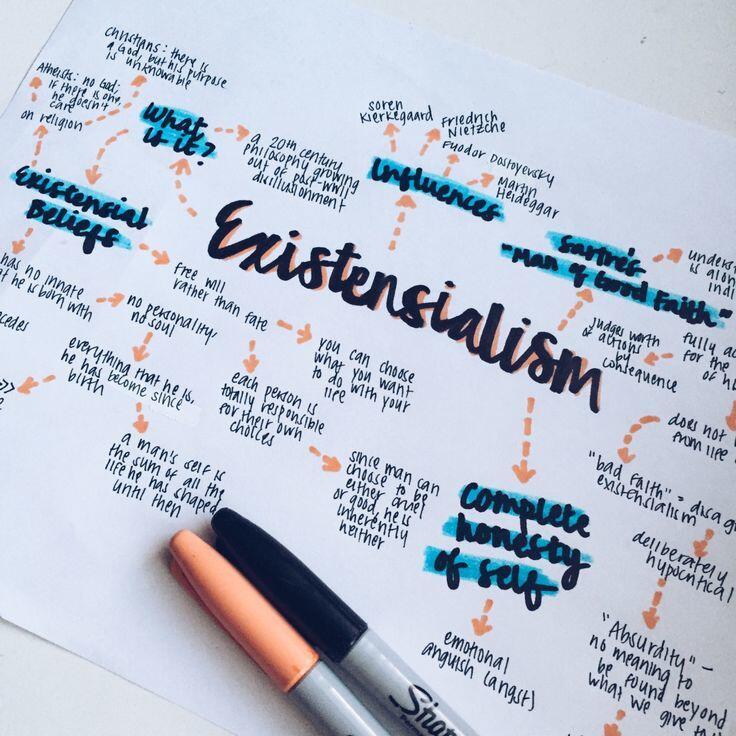 Christians: there is
a God, but his purpose
is unknowable
Atheists: no God;
if there is one,
he doesn't
care
on religion
What
is it?
a 20th century
philosophy growing
out of post-WWII
disillusionment
Soren
Kierkegaard
Friedrich
Nietzche
Fyodor Dostoyevsky
Martin
Heideggar
Influences
Existensial
Beliefs
Existensialism
Sartre's
"Man of Good Faith"
underst
is alon
indi
judges worth
of actions
by
consequence
fully ac
for the
of h
has no innate
at he is born with
cedes
no personality/
no soul
free will
rather than fate
you can choose
what you want
to do with your
life
everything that he is,
he has become since
birth
>>>
e
each person is
totally responsible
for their own
choices
a man's self is
the sum of all the
life he has shaped
until then
since man can
choose to be
either cruel
or good, he is
inherently
neither
Complete
honesty
of self
emotional
anguish (angst)
does not
from life
"bad faith" = disag
existensialism
deliberately
hypocritical
"Absurdity" –
no meaning to
be found beyond
what we give to
Sharp